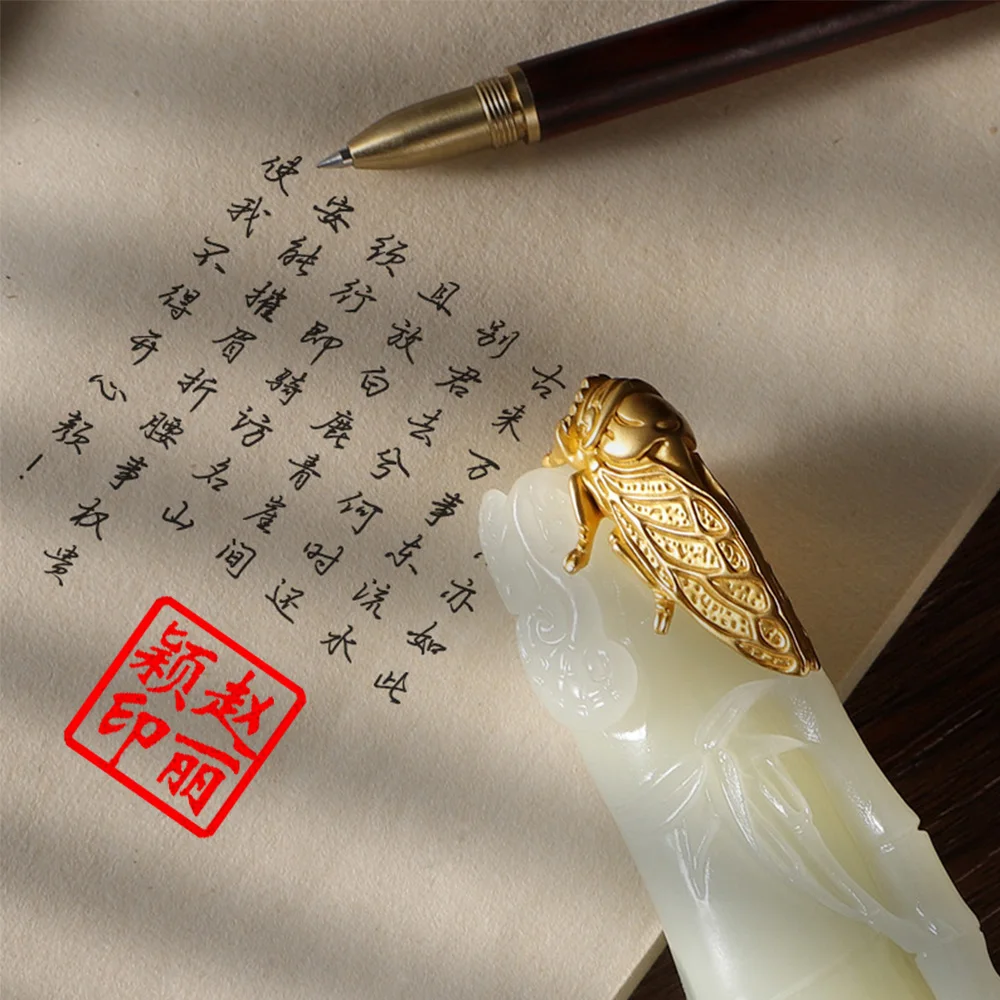 亦如此
古来万事东流水
别君去兮何时还
且放白鹿青崖间
须行即骑访名山
安能摧眉折腰事权贵
使我不得开心颜！
赵丽
颖印